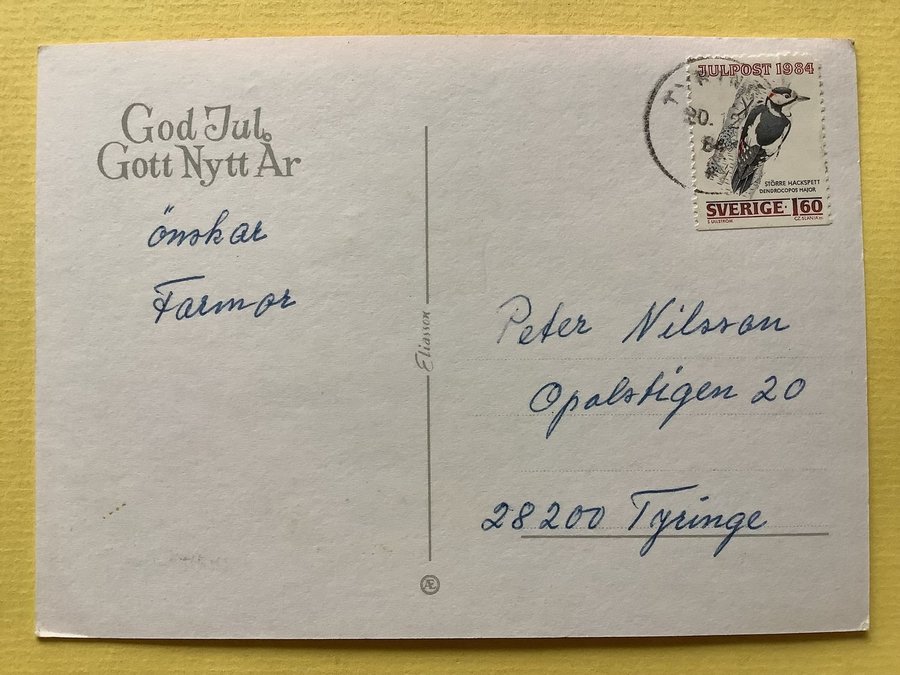 God Jul
Gott Nytt År
önskar
Farmor
Eliasson
Æ
JULPOST 1984
STÖRRE HACKSPETT
DENDROCOPOS MAJOR
SVERIGE · 1 60
CZ. SLANIA sc.
20.
Peter Nilsson
Opalstigen 20
28200 Tyringe